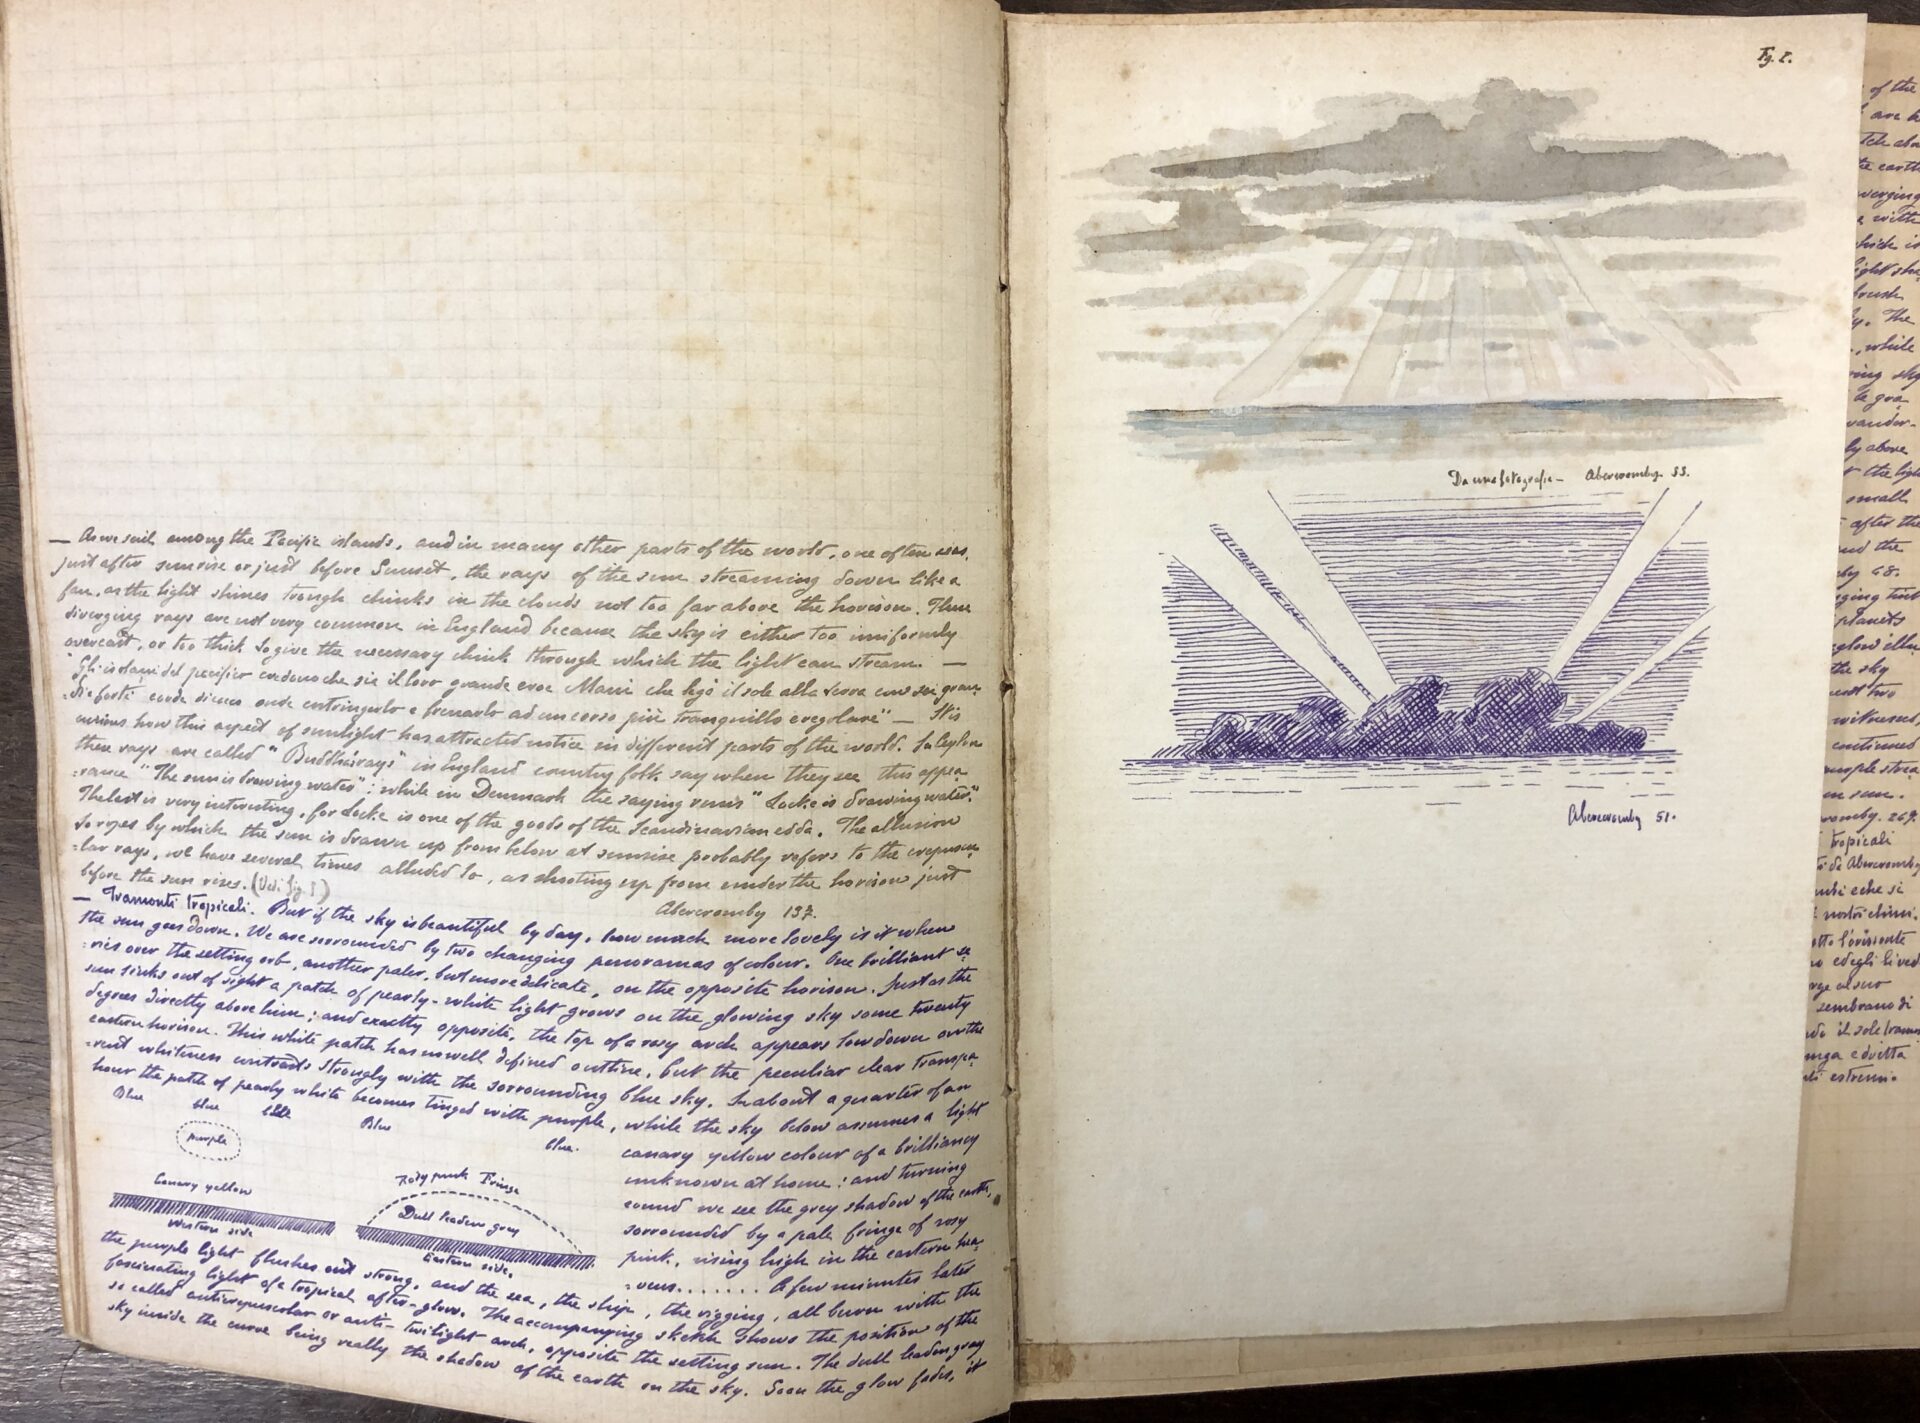 — As we sail among the Pacific islands, and in many other parts of the world, one often sees,
just after sunrise or just before Sunset, the rays of the sun streaming down like a
fan, as the light shines trough chinks in the clouds not too far above the horison. These
diverging rays are not very common in England because the sky is either too uniformly
overcast, or too thick to give the necessary chink through which the light can stream. —
"Gli isolani del pacifico credono che sia il loro grande eroe Maui che legò il sole alla terra con sei gran=
=di e forti corde onde costringerlo e frenarlo ad un corso più tranquillo e regolare" — It is
curious how this aspect of sunlight has attracted notice in different parts of the world. In Ceylon
these rays are called "Buddha's rays" in England country folk say when they see this appea=
=rance "The sun is drawing water"; while in Denmark the saying runs "Locke is drawing water."
The last is very interesting, for Locke is one of the goods of the Scandinavian edda. The allusion
to ropes by which the sun is drawn up from below at sunrise probably refers to the crepuscu=
=lar rays, we have several times alluded to, as shooting up from under the horison just
before the sun rises. (Vedi fig. I)
Abercromby 137.
— Tramonti tropicali. But if the sky is beautiful by day, how much more lovely is it when
the sun goes down. We are sorrounded by two changing panoramas of colour. One brilliant se=
=ries over the setting orb, another paler, but more delicate, on the opposite horison. Just as the
sun sinks out of sight a patch of pearly-white light grows on the glowing sky some twenty
degrees directly above him; and exactly opposite, the top of a rosy arch appears low down on the
eastern horison. This white patch has no well defined outline, but the peculiar clear transpa=
=rent whiteness contrasts strongly with the sorrounding blue sky. In about a quarter of an
hour the patch of pearly white becomes tinged with purple, while the sky below assumes a light
canary yellow colour of a brilliancy
unknown at home; and turning
round we see the grey shadow of the earth,
sorrounded by a pale fringe of rosy
pink, rising high in the eastern hea=
=vens. . . . . . . A few minutes later
Blue blue blue Blue blue.
purple
Canary yellow
Western side
Rosy pink Fringe
Dull leaden gray
Eastern side.
the purple light flushes out strong, and the sea, the ship, the rigging, all burn with the
fascinating light of a tropical after-glow. The accompanying sketch shows the position of the
so called anticrepuscolar or anti-twilight arch, opposite the setting sun. The dull leaden gray
sky inside the curve being really the shadow of the earth on the sky. Soon the glow fades, it
Fig. I.
Da una fotografia — Abercromby 55.
Abercromby 51.
of the
are
the earth
verging
with
which is
brush
The
while
sky
above
the light
small
after the
and the
68.
planets
glow
the sky
two
witnessed,
continued
purple
sun.
269.
tropicali
da Abercromby
e che si
nostri climi.
l'orizzonte
ed egli li
al suo
sembrano di
il sole
e diritta
estremi.